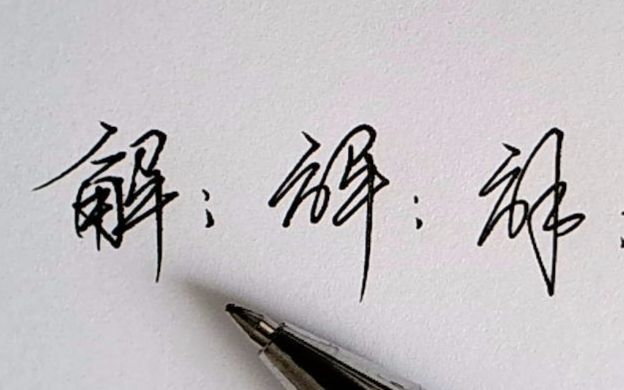 解；解；解；